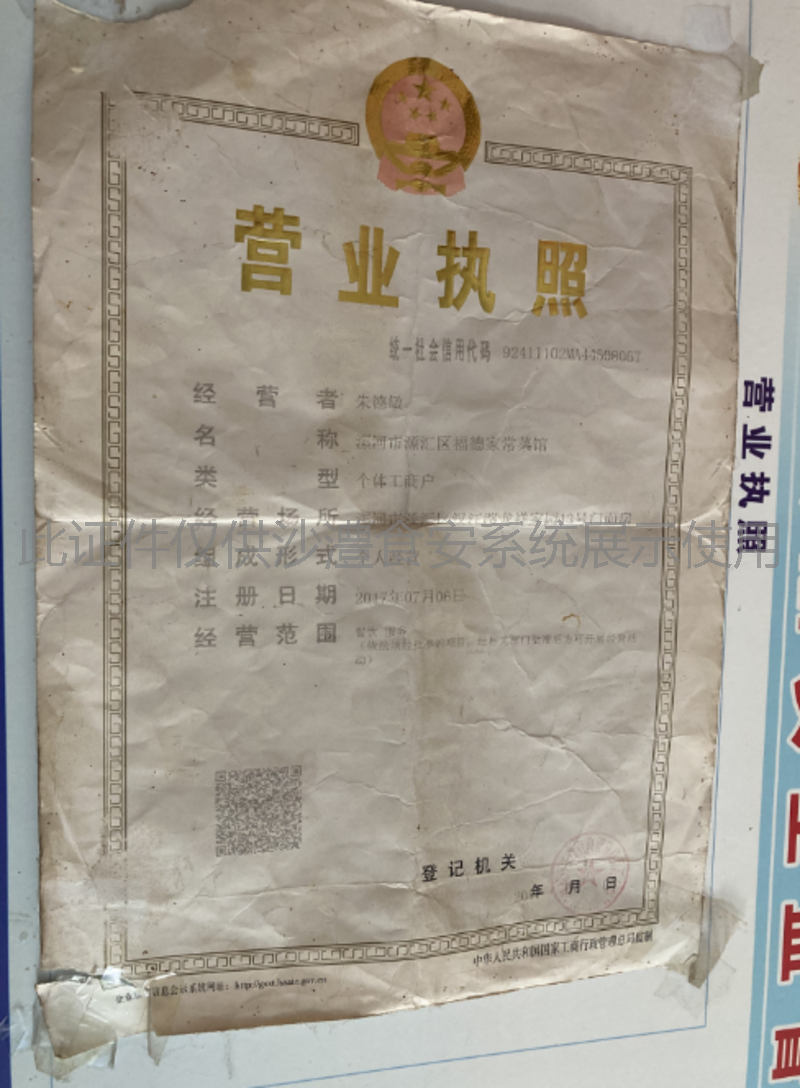 营业执照
统一社会信用代码 92411102MA4459806T
经营者 朱德敏
名称 漯河市源汇区福德家常菜馆
类型 个体工商户
经营场所
此证件仅供沙澧食安系统展示使用
组成形式
注册日期 2017年07月06日
经营范围 餐饮 服务
(依法须经批准的项目,经相关部门批准后方可开展经营活
动)
登记机关
年 月 日
信息公示系统网址:
中华人民共和国国家工商行政管理总局监制
营业执照